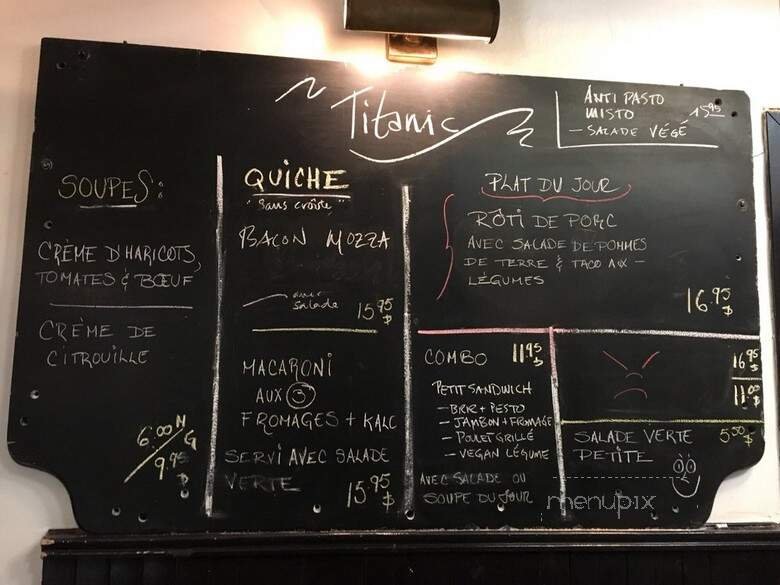 Titanic
ANTIPASTO
MISTO 15.95
- SALADE VÉGÉ
SOUPES:
CRÈME D'HARICOTS,
TOMATES & BŒUF
CRÈME DE
CITROUILLE
6.00 N
9.95 G
$
QUICHE
"Sans croûte"
BACON MOZZA
avec
salade 15.95
$
MACARONI
AUX 3
FROMAGES + KALE
SERVI AVEC SALADE
VERTE 15.95
$
PLAT DU JOUR
RÔTI DE PORC
AVEC SALADE DE POMMES
DE TERRE & TACO AUX
LÉGUMES
16.95
$
COMBO 11.95
$
PETIT SANDWICH
- BRIE + PESTO
- JAMBON + FROMAGE
- POULET GRILLÉ
- VEGAN LÉGUME
AVEC SALADE OU
SOUPE DU JOUR
16.95
$
11.00
$
SALADE VERTE 5.50
$
PETITE
menupix